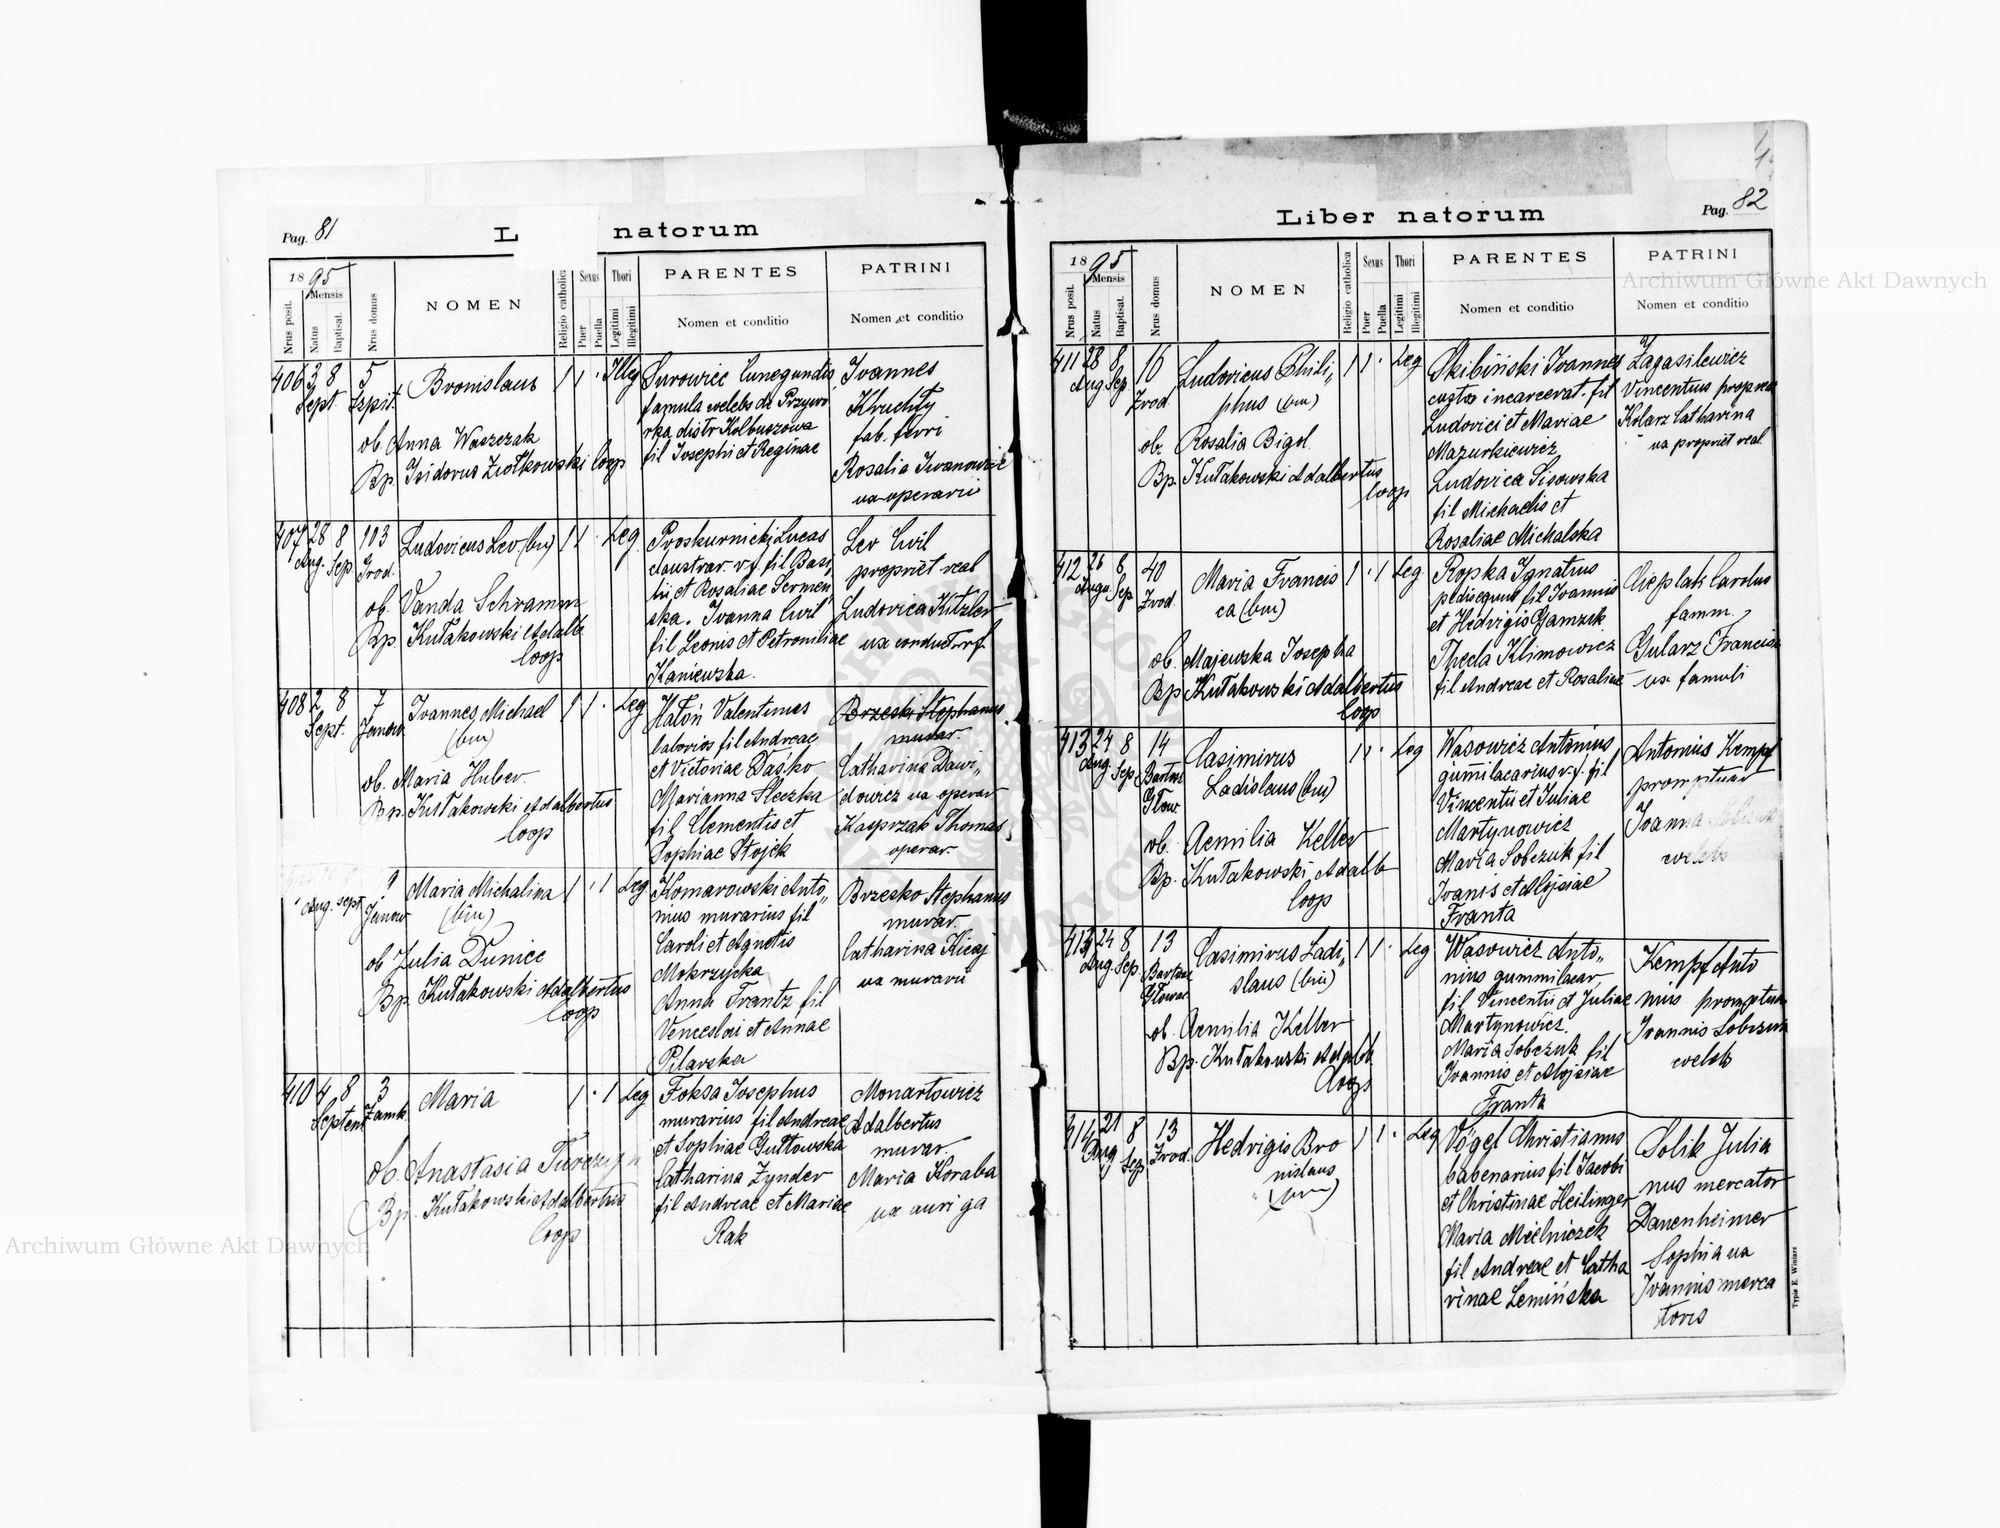 Pag. 81
L natorum
1895
Mensis
Nrus posit.
Natus
Baptisat.
Nrus domus
NOMEN
Religio catholica
Sexus
Puer
Puella
Thori
Legitimi
Illegitimi
PARENTES
Nomen et conditio
PATRINI
Nomen et conditio
406 3 8 5 Bronislaus 1 1 Illeg
Sept. Szpit.
ob. Anna Waszczak
Bp. Isidorus Ziołkowski Coop
Surowiec Cunegundis
famula celebs de Przywo
rka distr Kolbuszowa
fil Josephi et Reginae
Ivannes
Kluchty
fab. ferri
Rosalia Iwanowicz
ux operarii
407 28 8 103 Ludovicus Leo (bin) 1 1 Leg
Aug. Sep Grod.
ob. Vanda Schramm
Bp. Kułakowski Adalb
Coop
Proskurnicki Lucas
fil Leonis et Petroniliae
Kaniewska.
Leo Cwil
propriet real
Ludovica Kitzler
408 2 8 7 Ivannes Michael 1 1 Leg
Sept. Janow.
(bin)
ob. Maria Huber
Bp. Kułakowski Adalbertus
Coop
Hałoń Valentinus
laborios fil Andreae
et Victoriae Daśko
Marianna Sleczka
fil Clementis et
Sophiae Stojek
Brzeski Stephanus
murar.
Catharina Dawi„
dowicz ux operar
Kasprzak Thomas
operar.
9 Maria Michalina 1 1 Leg
Aug. sept Janow
(bin)
ob Julia Dunicc
Bp. Kułakowski Adalbertus
Coop
Komarowski Anto„
nius murarius fil
Caroli et Agnetis
Mokrzycka
Anna Frantz fil
Venceslai et Annae
Pilarska
Brzesko Stephanus
murar.
Catharina Kicaj
ux murarii
410 4 8 3 Maria 1 1 Leg
Septem Zamk.
ob. Anastasia
Bp. Kułakowski Adalbertus
Coop
Foksa Josephus
murarius fil Andreae
et Sophiae Guttowska
Catharina Zynder
fil Andreae et Mariae
Rak
Monartowicz
Adalbertus
murar.
Maria Koraba
ux auriga
Liber natorum
Pag. 82
1895
Mensis
Nrus posit.
Natus
Baptisat.
Nrus domus
NOMEN
Religio catholica
Sexus
Puer
Puella
Thori
Legitimi
Illegitimi
PARENTES
Nomen et conditio
PATRINI
Nomen et conditio
411 28 8 16 Ludovicus Phili„ 1 1 Leg
Aug Sep Zrod.
phus (bin)
ob. Rosalia Bigol
Bp. Kułakowski Adalbertus
Coop
Skibiński Ivannes
custos incarcerat. fil
Ludovici et Mariae
Mazurkiewicz
Ludovica Sisowska
fil Michaelis et
Rosaliae Michalska
Zagasilewicz
Vincentius
Kolarz Catharina
ux propriet real
412 26 8 40 Maria Francis 1 1 Leg
Sep Zrod.
ca (bin)
ob. Majewska Josepha
Bp Kułakowski Adalbertus
Coop
Ropka Ignatius
pedisequus fil Ivannis
et Hedvigis
Thecla Klimowicz
fil Andreae et Rosaliae
Carolus
famm.
Gularz Francisca
ux famuli
413 24 8 14 Casimirus 1 1 Leg
Aug. Sep. Bartos
Głow.
Ladislaus (bin)
ob. Aemilia Keller
Bp. Kułakowski Adalb
Coop
Wasowicz Antonius
fil
Vincentii et Juliae
Martynowicz
Maria Sobczuk fil
Ivanis et Alojsiae
Franta
Antonius Kempf
promptuar
Ivanna
celebs
413 24 8 13 Casimirus Ladi„ 1 1 Leg
Aug Sep.
slaus (bin)
ob. Aemilia Keller
Bp. Kułakowski Adalb
Coop
Wasowicz Anto„
nius gummilacar,
fil Vincentii et Juliae
Martynowicz.
Maria Sobczuk fil
Ivannis et Alojsiae
Franta
Kempf Anto
nius promptuar
Ivannis Sobczuk
celeb
414 21 8 13 Hedvigis Bro 1 1 Leg
Aug Sep Zrod.
nislaus
(bin)
Vogel Christianus
fil Jacobi
et Christinae Heilinger
Maria Mielniczek
fil Andreae et Catha
rinae Lemińska
Solik Julia
nus mercator
Danenheimer
Sophia ux
Ivannis merca
toris
Typis E. Winiarz
Archiwum Główne Akt Dawnych
Archiwum Główne Akt Dawnych